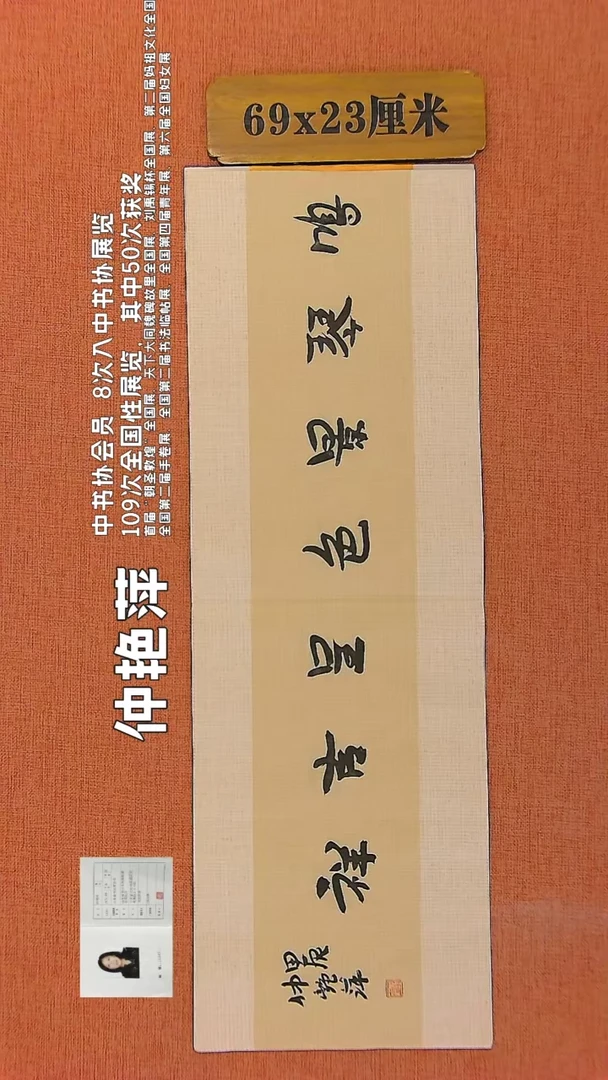 69x23厘米
仲艳萍
中书协会员 8次入中书协展览
109次全国性展览，其中50次获奖
首届“朝圣敦煌”全国展 天下大同魏碑故里全国展 刘禹锡杯全国展 第二届妈祖文化全国
全国第二届手卷展 全国第二届书法临帖展 全国第四届青年展 第六届全国妇女展
鸣琴景色呈吉祥
甲辰
仲艳萍